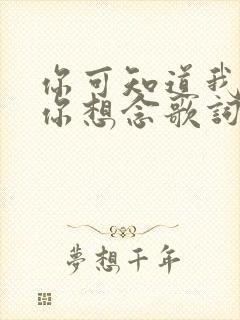 你可知道我
你想念歌詞
夢想千年